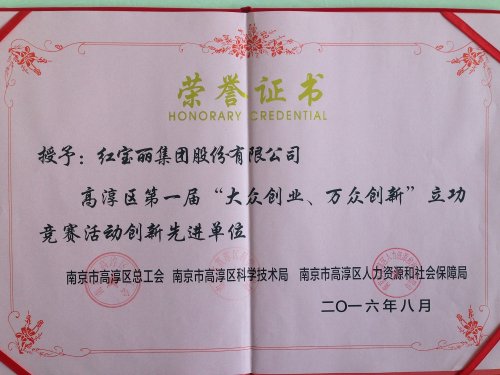 荣誉证书
HONORARY CREDENTIAL
授予：红宝丽集团股份有限公司
高淳区第一届“大众创业、万众创新”立功
竞赛活动创新先进单位
南京市高淳区总工会 南京市高淳区科学技术局 南京市高淳区人力资源和社会保障局
二〇一六年八月